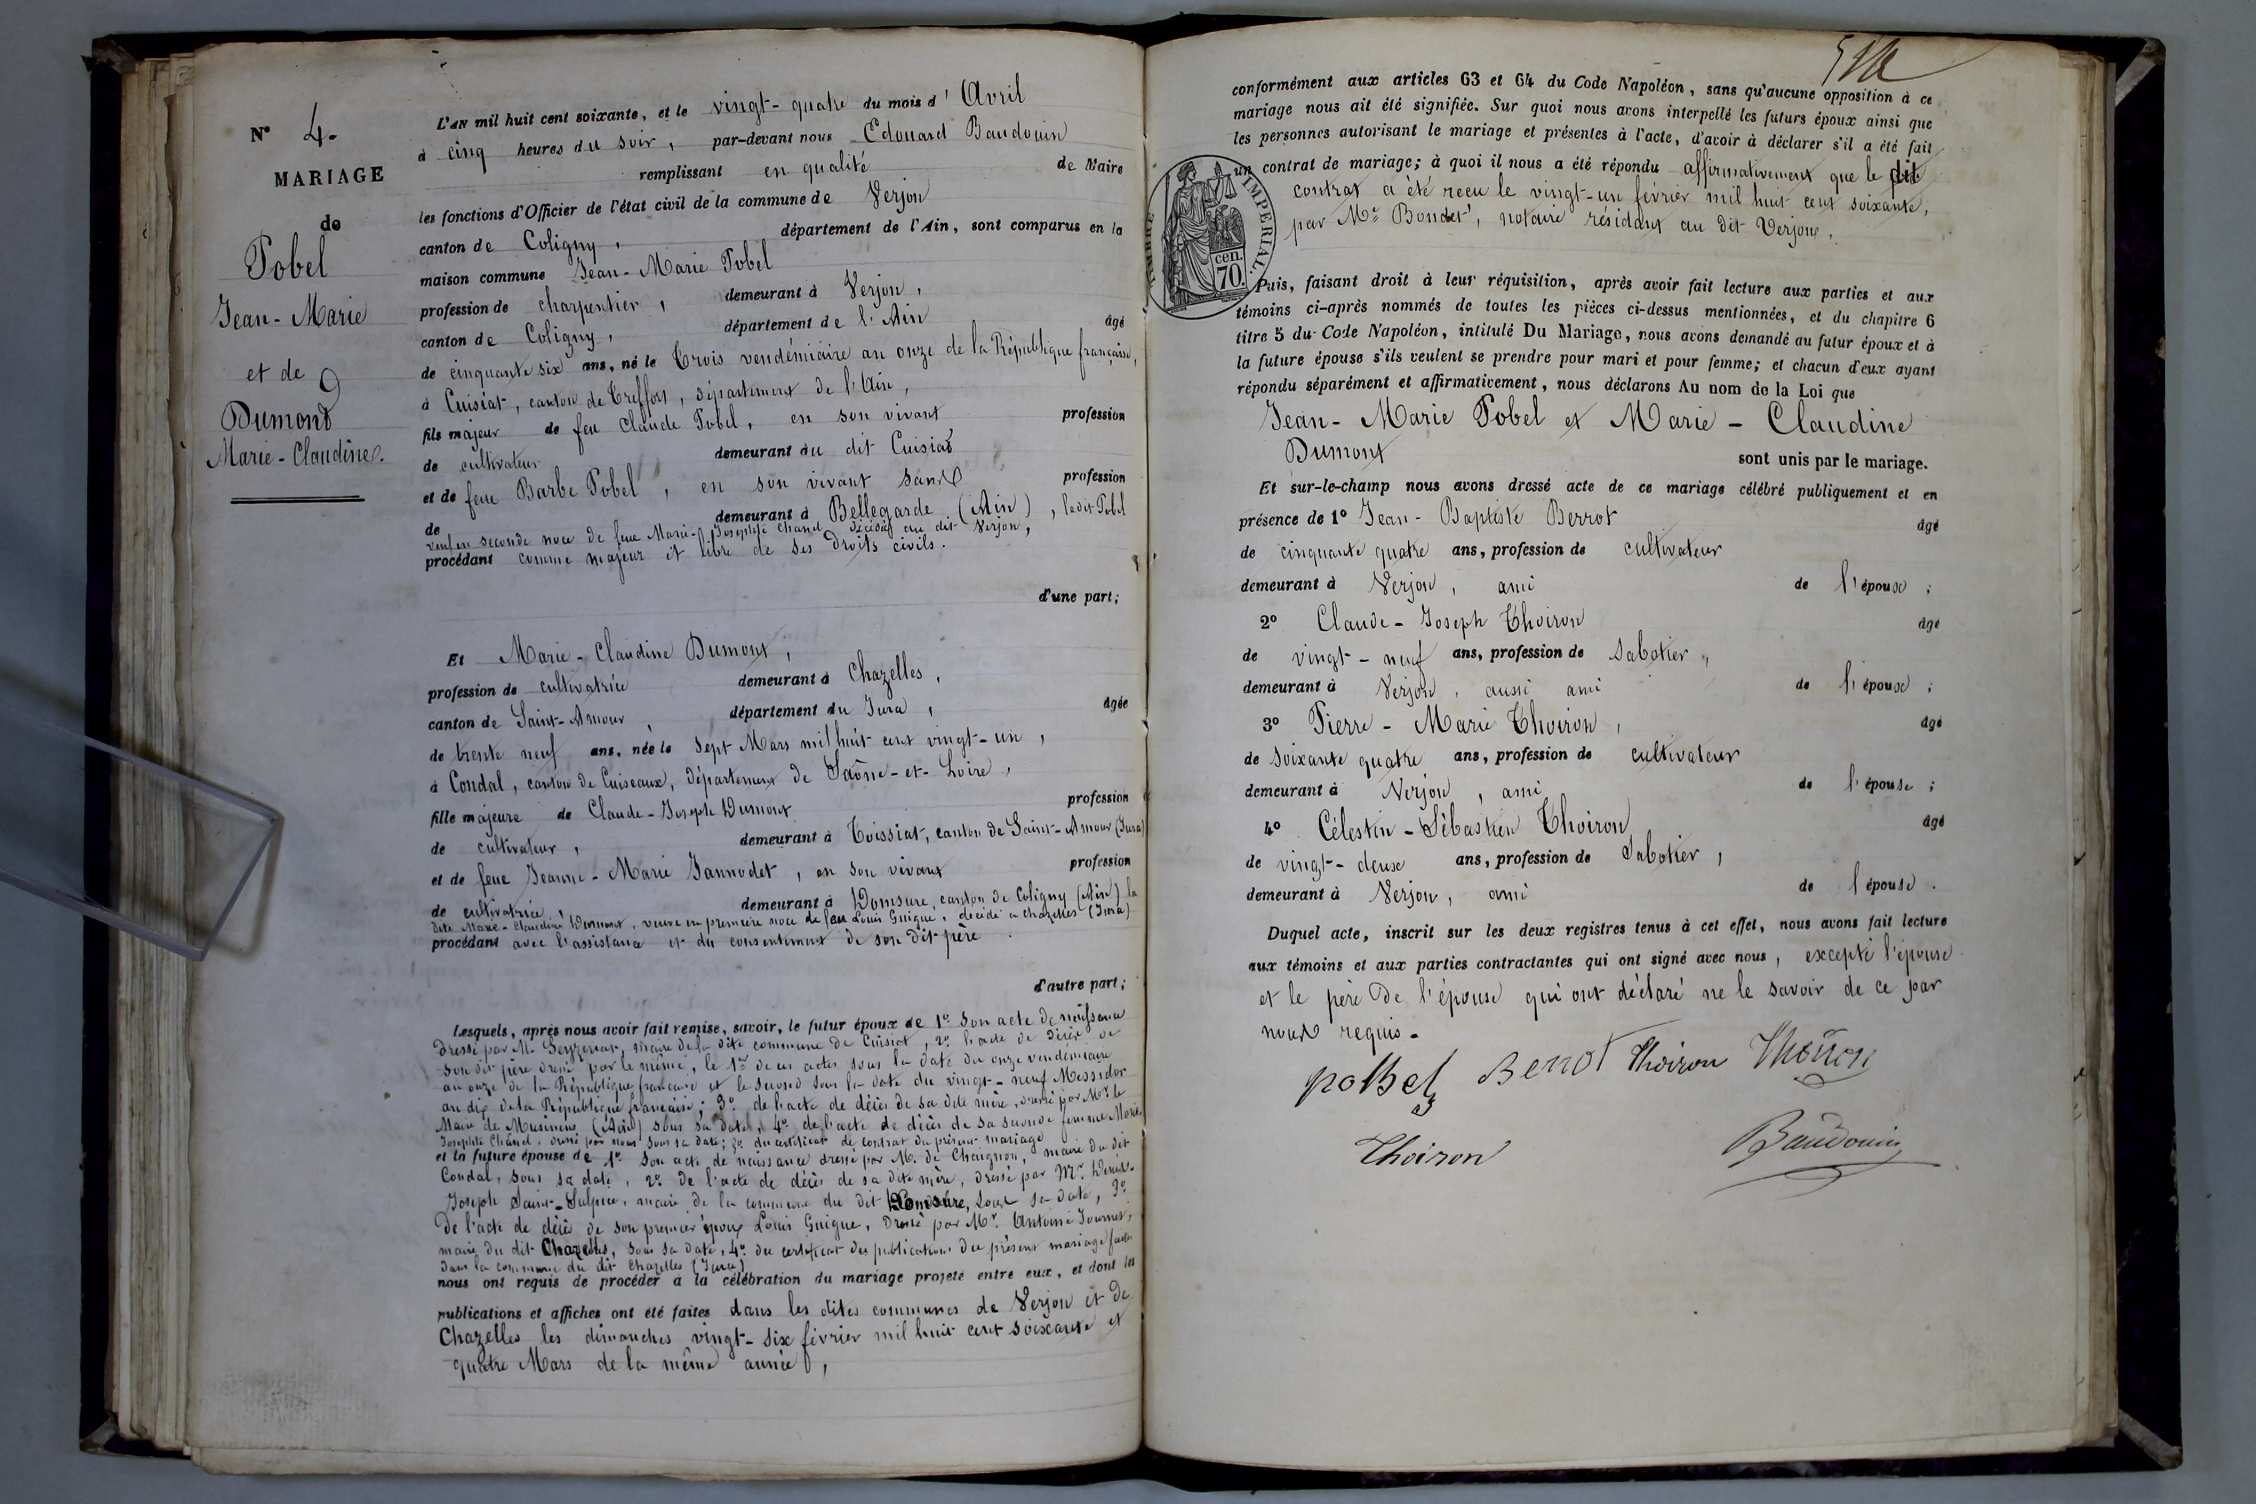 N° 4.
MARIAGE
de
Pobel
Jean-Marie
et de
Dumont
Marie-Claudine.
L'AN mil huit cent soixante, et le vingt-quatre du mois d'Avril
à cinq heures du soir, par-devant nous Edouard Baudouin
remplissant en qualité de Maire
les fonctions d'Officier de l'état civil de la commune de Verjon
canton de Coligny, département de l'Ain, sont comparus en la
maison commune Jean-Marie Pobel
profession de charpentier, demeurant à Verjon,
canton de Coligny, département de l'Ain âgé
de cinquante six ans, né le trois vendémiaire an onze de la République française,
à Cuisiat, canton de Treffort, département de l'Ain,
fils majeur de feu Claude Pobel, en son vivant profession
de cultivateur demeurant au dit Cuisiat
et de feue Barbe Pobel, en son vivant sans profession
de demeurant à Bellegarde (Ain), le dit Pobel
veuf en seconde noce de feue Marie-Josephte Chanel décédée au dit Verjon,
procédant comme majeur et libre de ses droits civils.
d'une part;
Et Marie-Claudine Dumont,
profession de cultivatrice demeurant à Chazelles,
canton de Saint-Amour, département du Jura, âgée
de trente neuf ans, née le sept Mars mil huit cent vingt-un,
à Condal, canton de Cuiseaux, département de Saône-et-Loire,
fille majeure de Claude-Joseph Dumont profession
de cultivateur, demeurant à Toissiat, canton de Saint-Amour (Jura)
et de feue Jeanne-Marie Jannodet, en son vivant profession
de cultivatrice, demeurant à Domsure, canton de Coligny (Ain) la
dite Marie-Claudine Dumont, veuve en première noce de feu Louis Guigue, décédé à Chazelles (Jura)
procédant avec l'assistance et du consentement de son dit père
d'autre part;
Lesquels, après nous avoir fait remise, savoir, le futur époux de 1° son acte de naissance
dressé par M. maire de la dite commune de Cuisiat, 2° l'acte de décès de
son dit père dressé par le même, le 1er de ces actes sous la date du onze vendémiaire
an onze de la République française et le second sous la date du vingt-neuf Messidor
an dix de la République française; 3° de l'acte de décès de sa dite mère, dressé par Mr le
Maire de Musinens (Ain) sous sa date, 4° de l'acte de décès de sa seconde femme Marie
Josephte Chanel, dressé par nous sous sa date; 5° du certificat de contrat du présent mariage
et la future épouse de 1° son acte de naissance dressé par M. de Chaignon, maire du dit
Condal, sous sa date, 2° de l'acte de décès de sa dite mère, dressé par Mr. Denis-
Joseph Saint-Sulpice, maire de la commune du dit Domsure, sous sa date, 3°
de l'acte de décès de son premier époux Louis Guigue, dressé par Mr. Antoine Journet,
maire du dit Chazelles, sous sa date, 4° du certificat des publications du présent mariage faites
dans la commune du dit Chazelles (Jura)
nous ont requis de procéder à la célébration du mariage projeté entre eux, et dont les
publications et affiches ont été faites dans les dites communes de Verjon et de
Chazelles les dimanches vingt-six février mil huit cent soixante et
quatre Mars de la même année,
conformément aux articles 63 et 64 du Code Napoléon, sans qu'aucune opposition à ce
mariage nous ait été signifiée. Sur quoi nous avons interpellé les futurs époux ainsi que
les personnes autorisant le mariage et présentes à l'acte, d'avoir à déclarer s'il a été fait
un contrat de mariage; à quoi il nous a été répondu affirmativement que le dit
contrat a été reçu le vingt-un février mil huit cent soixante,
par Me Bondet, notaire résidant au dit Verjon.
TIMBRE IMPERIAL.
70. cen.
Puis, faisant droit à leur réquisition, après avoir fait lecture aux parties et aux
témoins ci-après nommés de toutes les pièces ci-dessus mentionnées, et du chapitre 6
titre 5 du Code Napoléon, intitulé Du Mariage, nous avons demandé au futur époux et à
la future épouse s'ils veulent se prendre pour mari et pour femme; et chacun d'eux ayant
répondu séparément et affirmativement, nous déclarons Au nom de la Loi que
Jean-Marie Pobel et Marie-Claudine
Dumont
sont unis par le mariage.
Et sur-le-champ nous avons dressé acte de ce mariage célébré publiquement et en
présence de 1° Jean-Baptiste Berrot âgé
de cinquante quatre ans, profession de cultivateur
demeurant à Verjon, ami de l'épouse;
2° Claude-Joseph Thoiron âgé
de vingt-neuf ans, profession de sabotier,
demeurant à Verjon, aussi ami de l'épouse;
3° Pierre-Marie Thoiron, âgé
de soixante quatre ans, profession de cultivateur
demeurant à Verjon, ami de l'épouse;
4° Célestin-Sébastien Thoiron âgé
de vingt-deux ans, profession de sabotier,
demeurant à Verjon, ami de l'épouse.
Duquel acte, inscrit sur les deux registres tenus à cet effet, nous avons fait lecture
aux témoins et aux parties contractantes qui ont signé avec nous, excepté l'épouse
et le père de l'épouse qui ont déclaré ne le savoir de ce par
nous requis.
poBel Berrot Thoiron Thoiron
Thoiron Baudouin